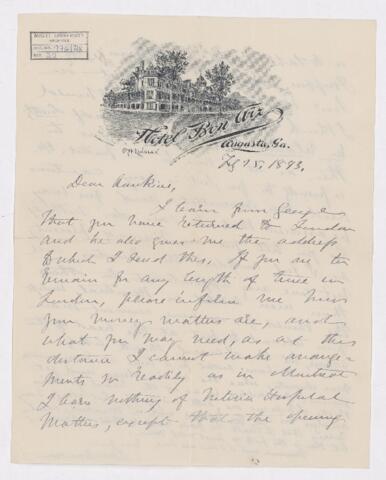 McGILL UNIVERSITY
ARCHIVES
Hotel Bon Air
Augusta, Ga.
1893.
Dear Hawkins,
I learn from George
that you have returned to London
and he also gives me the address
to which I send this. If you are to
remain for any length of time in
London, please inform me how
your money matters are, and
what you may need, as at this
distance I cannot make arrange-
ments so readily as in Montreal
I learn nothing of Victoria Hospital
Matters, except that the opening